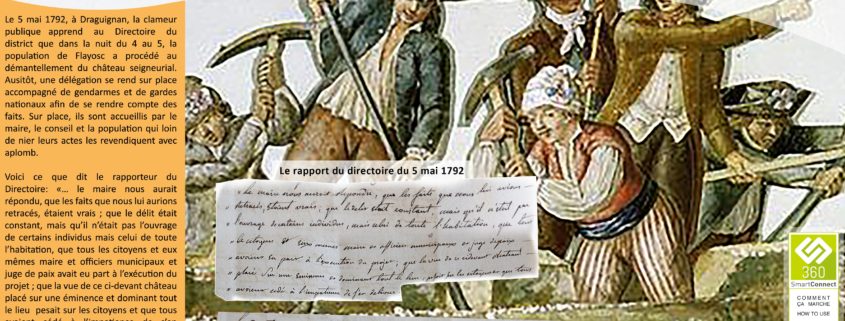 Le 5 mai 1792, à Draguignan, la clameur
publique apprend au Directoire du
district que dans la nuit du 4 au 5, la
population de Flayosc a procédé au
démantellement du château seigneurial.
Ausitôt, une délégation se rend sur place
accompagné de gendarmes et de gardes
nationaux afin de se rendre compte des
faits. Sur place, ils sont accueillis par le
maire, le conseil et la population qui loin
de nier leurs actes les revendiquent avec
aplomb.
Voici ce que dit le rapporteur du
Directoire: «... le maire nous aurait
répondu, que les faits que nous lui aurions
retracés, étaient vrais ; que le délit était
constant, mais qu'il n'était pas l'ouvrage
de certains individus mais celui de toute
l'habitation, que tous les citoyens et eux
mêmes maire et officiers municipaux et
juge de paix avait eu part à l'exécution du
projet ; que la vue de ce ci-devant château
placé sur une éminence et dominant tout
le lieu pesait sur les citoyens et que tous
Le rapport du directoire du 5 mai 1792
» Le maire nous aurait répondu, que les faits que nous lui avions
» retracés, étaient vrais, que le délit était constant, mais qu'il n'était pas
» l'ouvrage de certains individus, mais celui de toute l'habitation, que tous
» les citoyens et eux mêmes maire et officiers municipaux et juge de paix
» avaient eu part à l'exécution du projet ; que la vue de ce ci-devant château
» placé sur une éminence et dominant tout le lieu, pesait sur les citoyens que tous
» avaient cédé à l'impatience de
360
SmartConnect
COMMENT
ÇA MARCHE
HOW TO USE